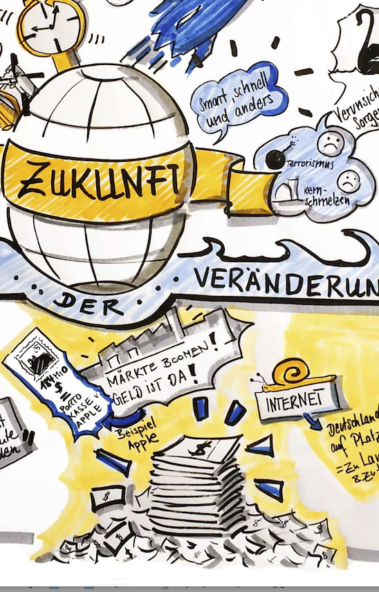 Smart, schnell
und anders
Verunsich
Sorge
ZUKUNFT
Terrorismus
kern-
schmelzen
DER VERÄNDERUN
MÄRKTE BOOMEN!
GELD IST DA!
$
=
PORTO
KASSE
APPLE
Beispiel
Apple
INTERNET
Deutschland
auf Platz
= zu La
& zu
$